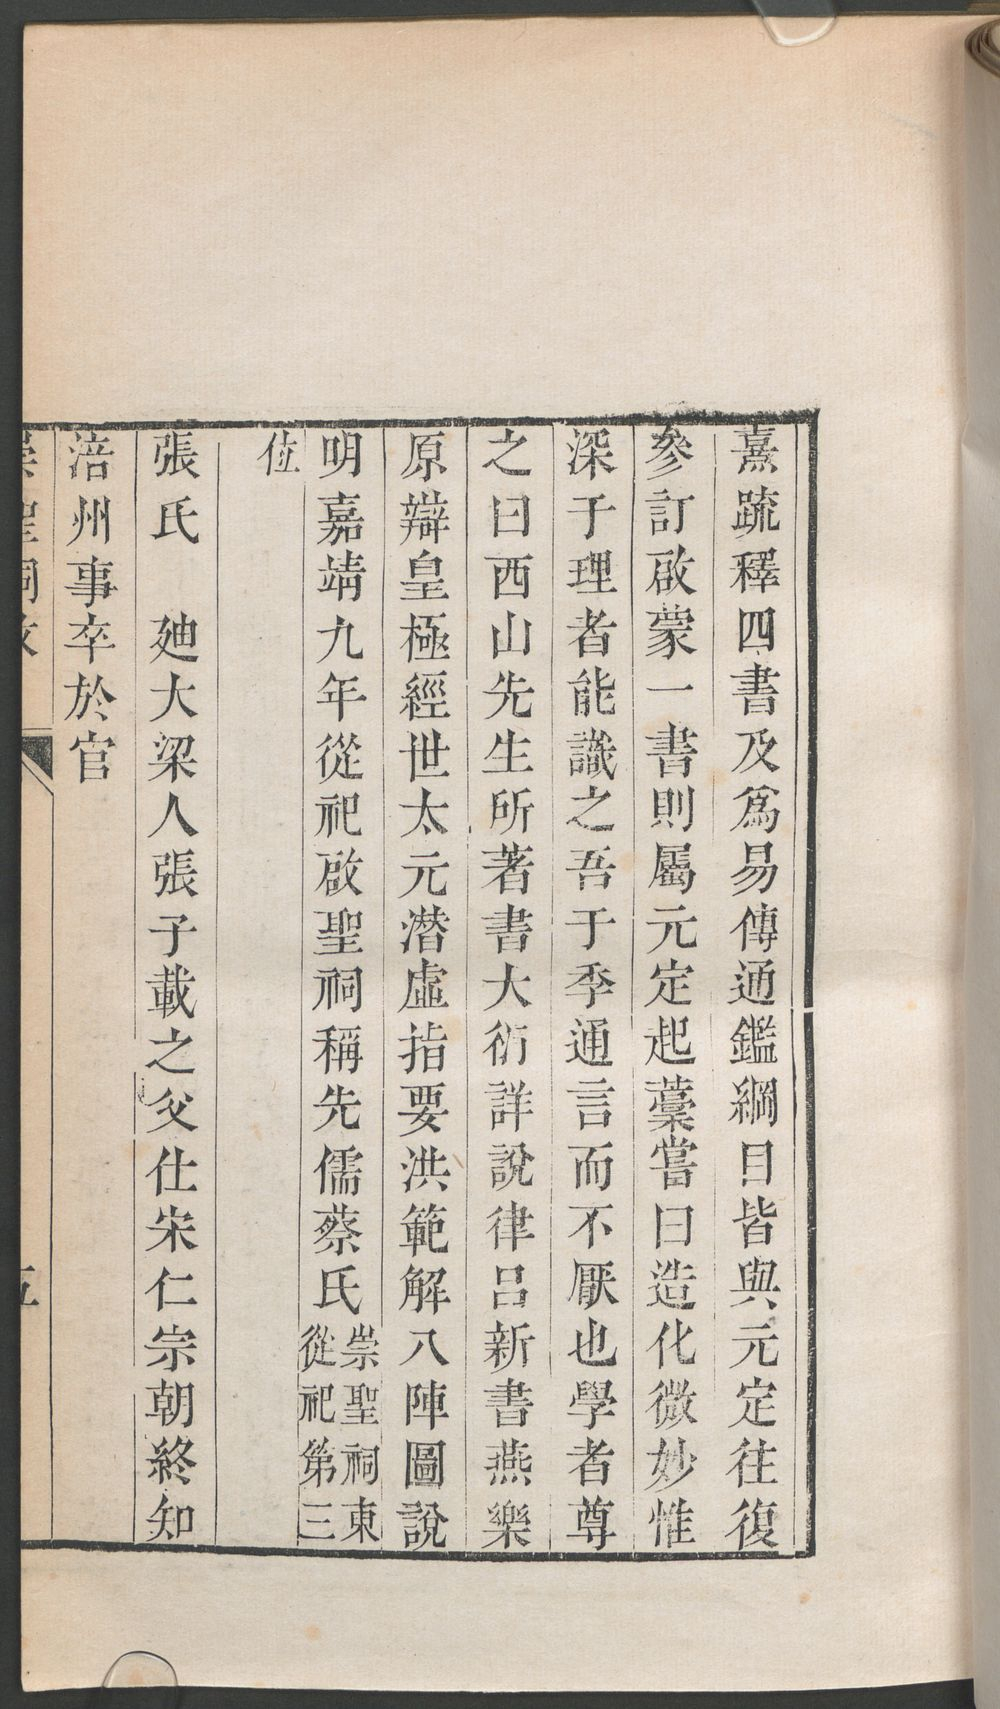 熹疏釋四書及爲易傳通鑑綱目皆與元定往復
參訂啟蒙一書則屬元定起藁嘗曰造化微妙惟
深于理者能識之吾于季通言而不厭也學者尊
之曰西山先生所著書大衍詳說律呂新書燕樂
原辯皇極經世太元潛虛指要洪範解八陣圖說
明嘉靖九年從祀啟聖祠稱先儒蔡氏崇聖祠東從祀第三
位
張氏　廸大梁人張子載之父仕宋仁宗朝終知
涪州事卒於官
崇聖祠攷　五